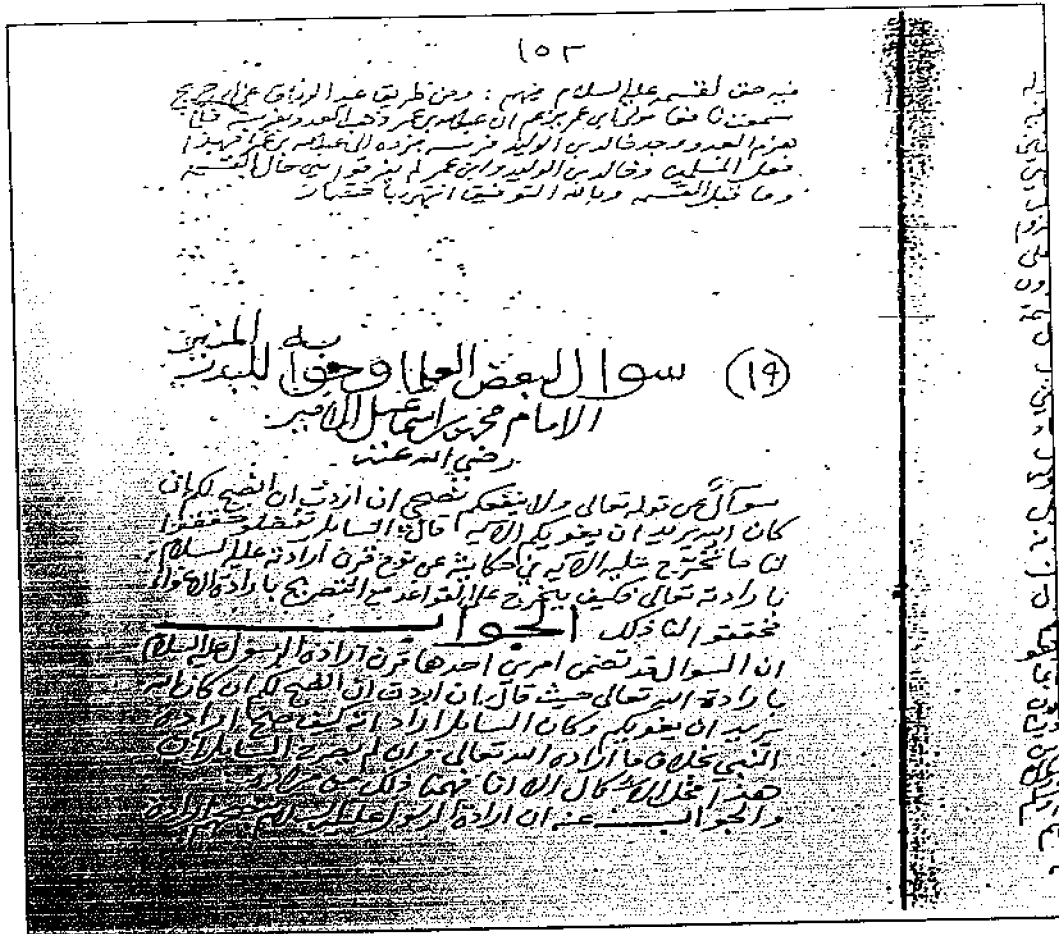 ١٥٢
فيه حق لقسمه عليه السلام فيهم : ومن طريق عبد الرزاق عن ابن جريج
سمعت نافعا مولى ابن عمر يزعم ان عبدالله بن عمر ذهب العدو بفرسه فلما
هزم العدو وجد خالد بن الوليد فرسه فرده الى عبدالله بن عمر فهذا
فعل المسلمين وخالد بن الوليد وابن عمر لم يفرقوا بين حال القسمة
وما قبل القسمه وبالله التوفيق انتهى باختصار
(١٩) سوال لبعض العلما وجوابه للبدر المنير
الامام محمد بن اسماعيل الامير
رضي الله عنه
سوال عن قوله تعالى ولا ينفعكم نصحي ان اردت ان انصح لكم ان
كان الله يريد ان يغويكم الايه قال السايل تفضلوا حققوا
لنا ما تخرج عليه الآيه في حكايته عن نوح قرن ارادته عليه السلام
بارادته تعالى فكيف يتخرج على القواعد مع التصريح بارادة الاغوا
فحققوا لنا ذلك الجواب
ان السوال قد تضمن امرين احدها قرن ارادة الرسول عليه السلام
بارادة الله تعالى حيث قال ان اردت ان انصح لكم ان كان الله
يريد ان يغويكم وكان السايل اراد انه كيف صح ارادة
النبي خلاف ما اراده الله تعالى وان لم يصرح السايل ان
هذا محل الاشكال الا انا فهمنا ذلك من مراده
والجواب عنه ان ارادة الرسول عليه السلام